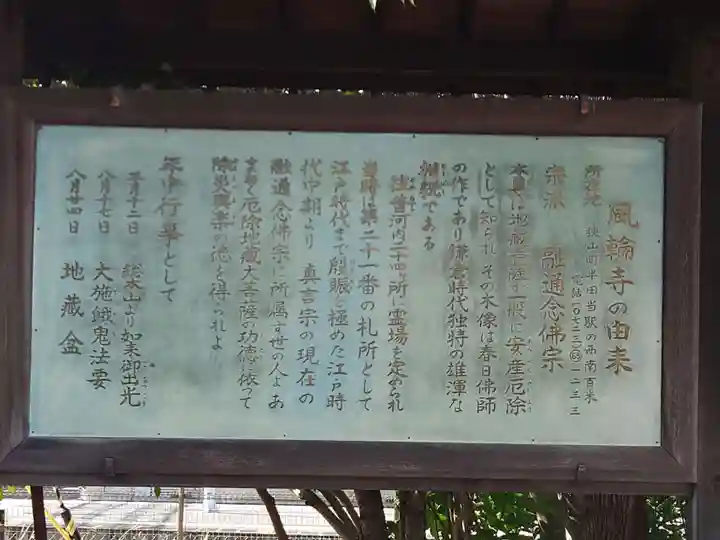 風輪寺の由来
所在地 狭山町半田当駅の西南百米
電話(〇七二三)(65)一二三三
宗派 融通念佛宗
本尊は地蔵菩薩で一般に安産厄除
として知られ、その木像は春日佛師
の作であり鎌倉時代独特の雄渾な
相貌である
往昔河内二十四ヶ所に霊場を定められ
当時は第二十一番の札所として
江戸時代まで殷賑を極めた江戸時
代中期より 真言宗の現在の
融通念佛宗に所属す世の人よあ
まねく厄除地蔵大菩薩の功徳に依って
除災興楽の徳を得られよ
年中行事として
五月十二日 総本山より如来御出光
八月十七日 大施餓鬼法要
八月廿四日 地蔵盆